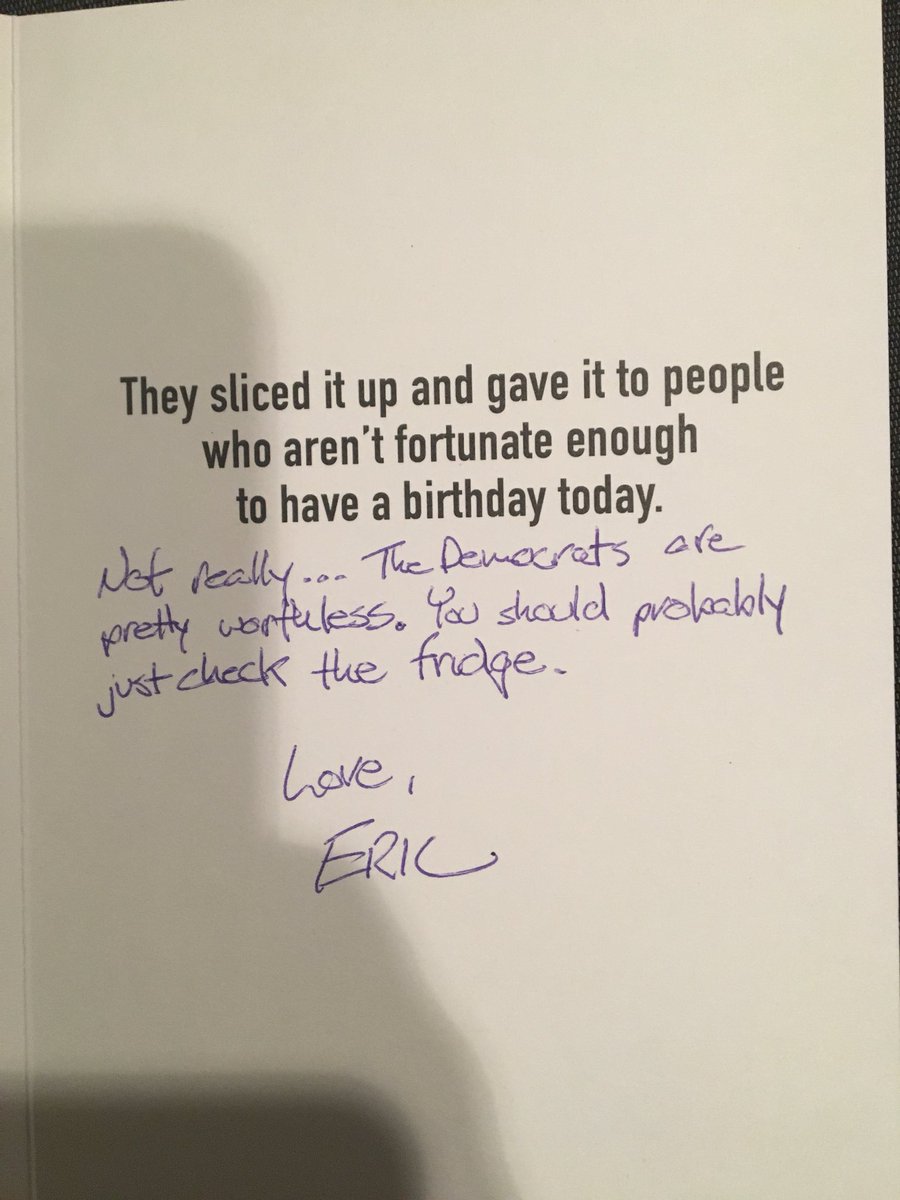 They sliced it up and gave it to people
who aren't fortunate enough
to have a birthday today.
Not really... The Democrats are
pretty worthless. You should probably
just check the fridge.
Love,
ERIC